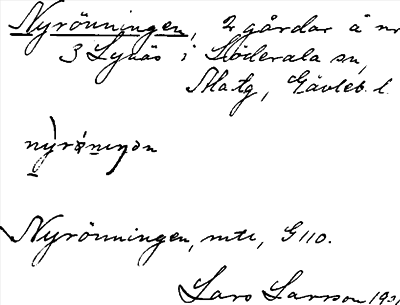 Nyrönningen, 2 gårdar å nr
3 Lynäs i Söderala sn,
Matg, Gävleb. l.
Nyrönningen, mtr, G 110.
Lars Larsson 193